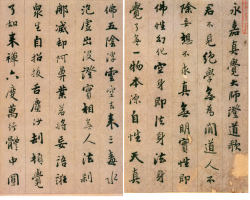 永嘉真覺大師證道歌
君不見絕學無為閒道人不
除妄想不求真無明實性即
佛性幻化空身即法身法身
覺了無一物本源自性天真
佛五陰浮雲空去來三毒水
泡虛出沒證實相無人法剎
那滅却阿鼻業若將妄語誑
眾生自招拔舌塵沙劫頓覺
了如來禪六度萬行體中圓